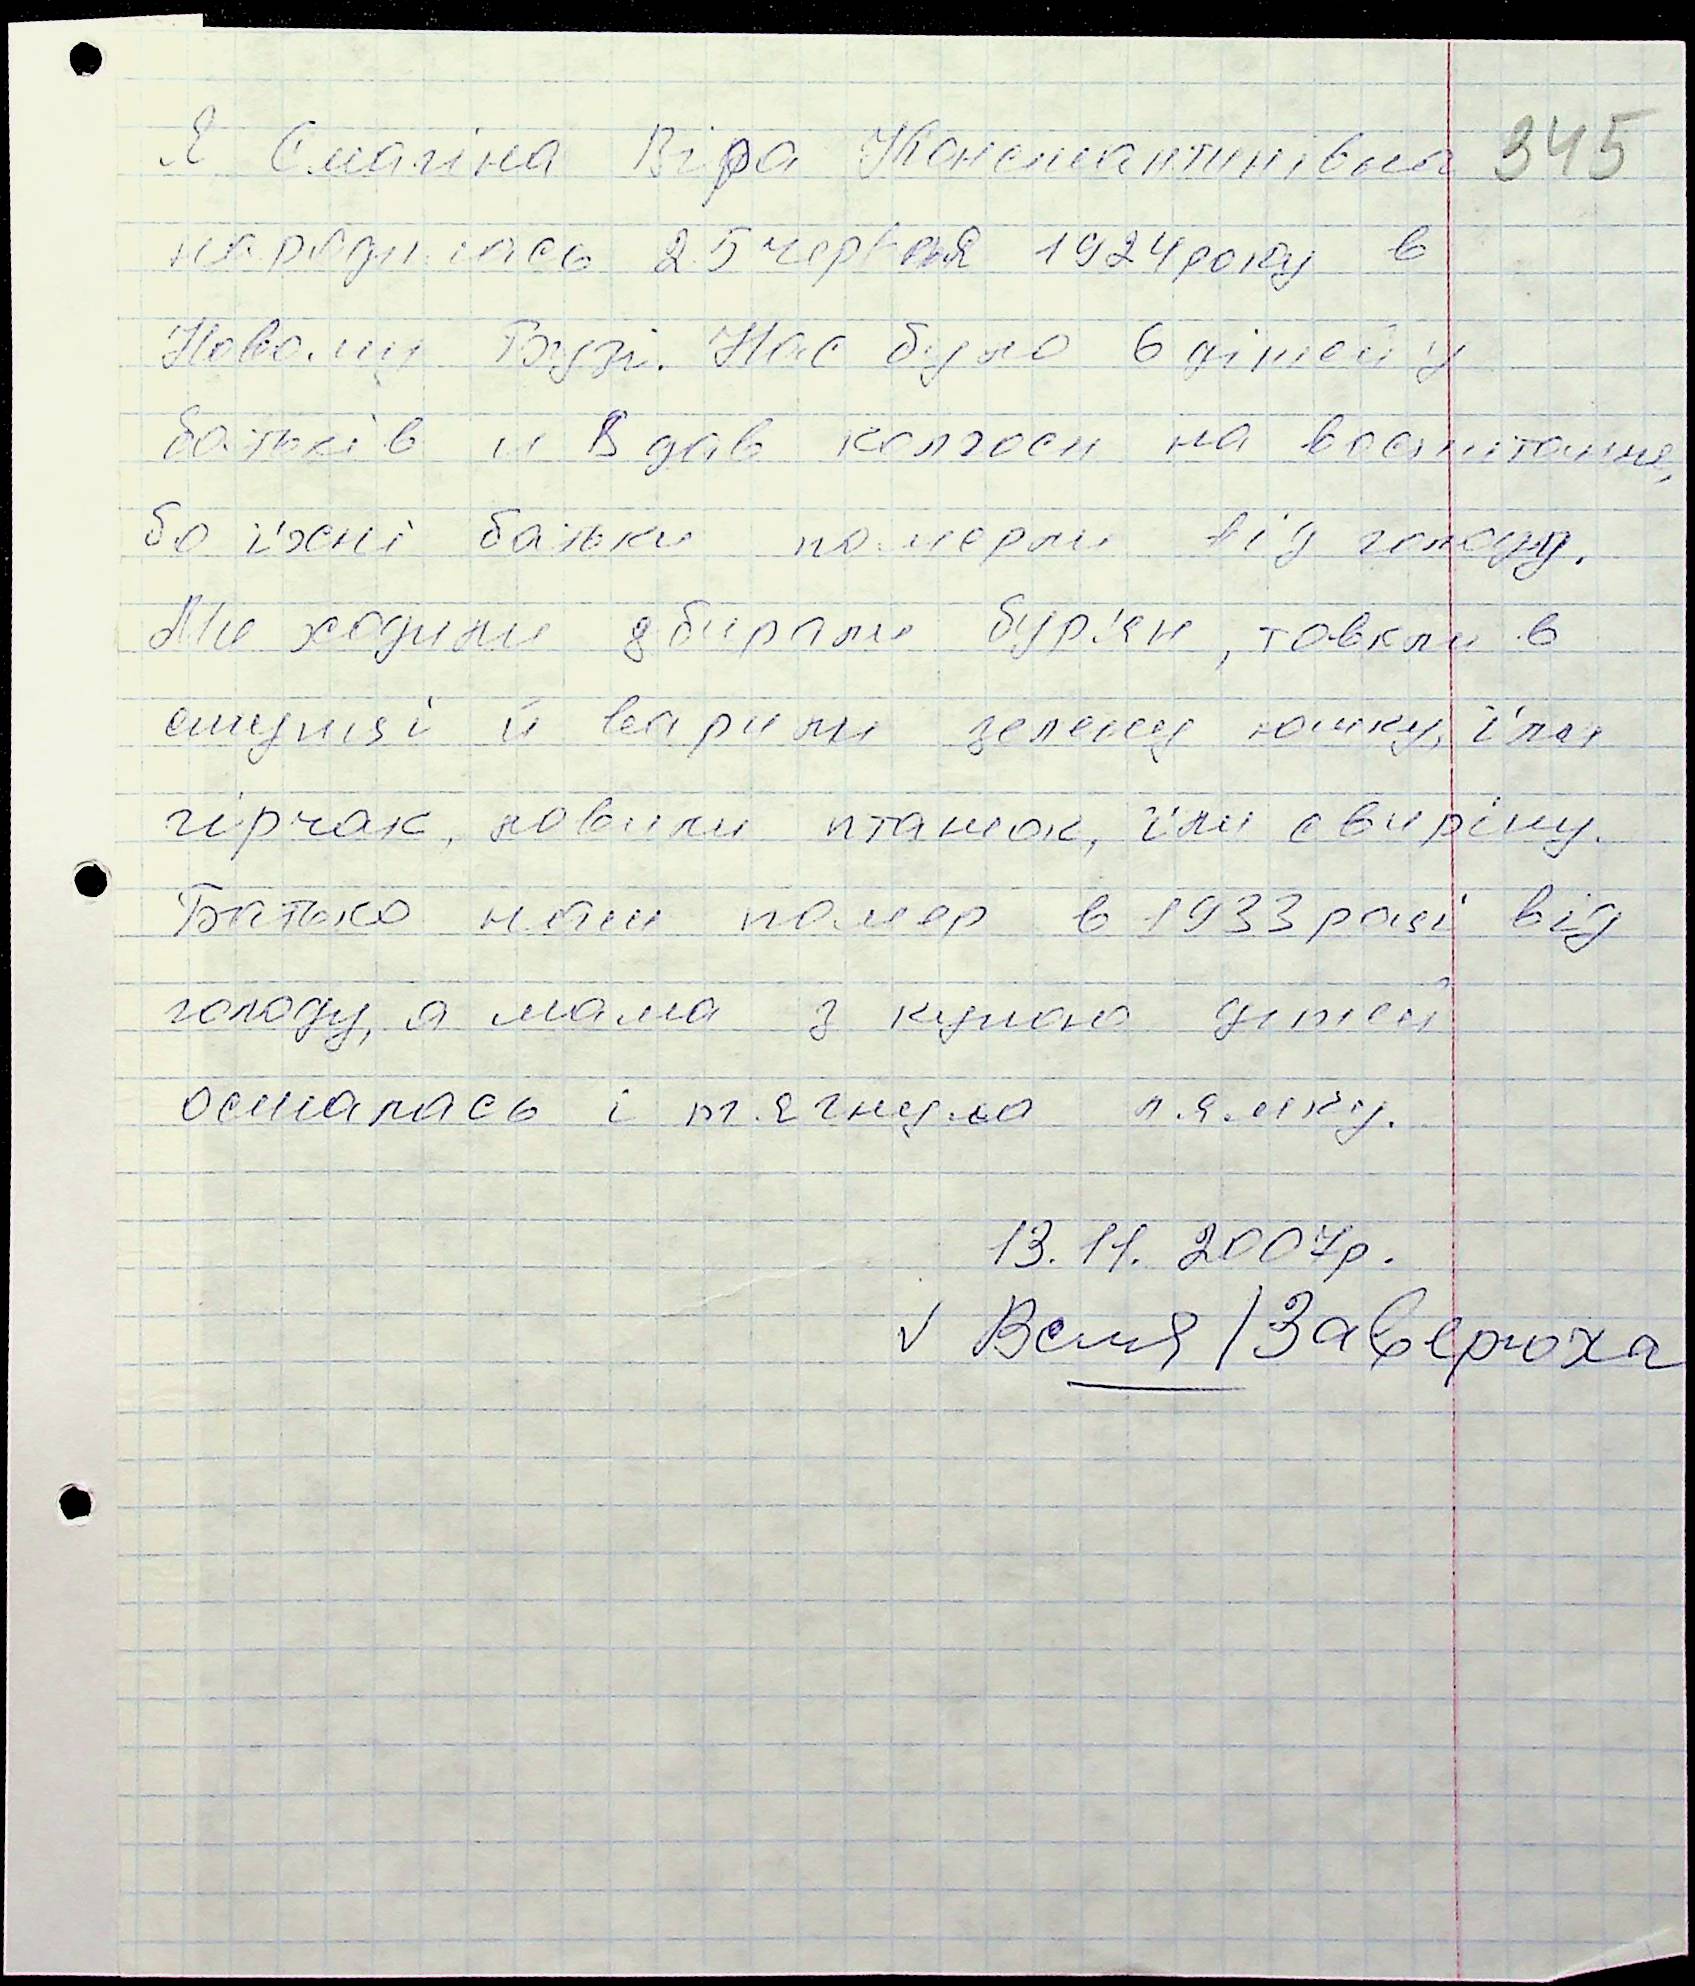 Я Смагіна Віра Констянтинівна 345
народилась 25 червня 1924 року в
Новому Бузі. Нас було 6 дітей у
батьків и 8 дав колгосп на воспітання,
бо їхні батьки померли від голоду.
Ми ходили збирали бур'ян, товкли в
ступці й варили зелену юшку, їли
гірчак, ловили пташок, їли свиріпу.
Батько наш помер в 1933 році від
голоду, а мама з купою дітей
осталась і тягнула лямку.
13.11.2007р.
√ /Заверюха